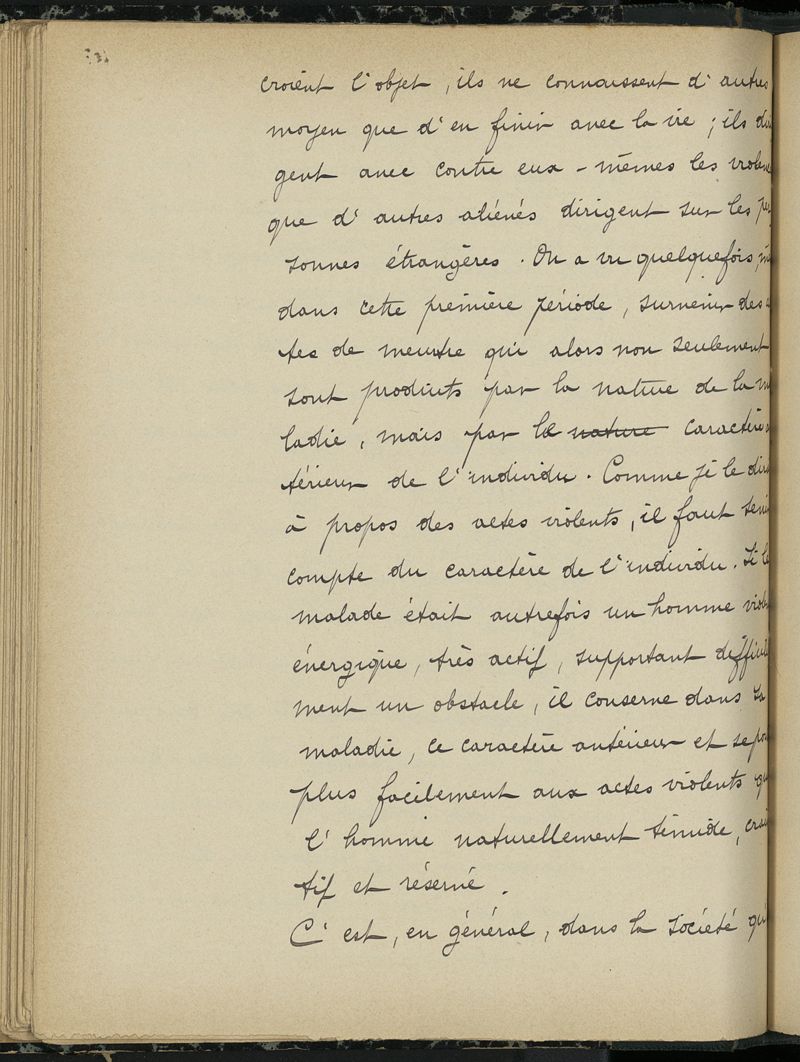 croient l'objet, ils ne connaissent d'autres
moyen que d'en finir avec la vie ; ils di
gent avec contre eux-mêmes les violen
que d'autres aliénés dirigent sur les per
sonnes étrangères. On a vu quelquefois, m
dans cette première période, survenir des a
tes de meurtre qui alors non seulement
sont produits par la nature de la m
ladie, mais par le nature caractère
térieur de l'individu. Comme je le dis
à propos des actes violents, il faut teni
compte du caractère de l'individu. Si le
malade était autrefois un homme viol
énergique, très actif, supportant diffici
ment un obstacle, il conserve dans sa
maladie, ce caractère antérieur et se por
plus facilement aux actes violents qu
l'homme naturellement timide, crai
tif et réservé.
C'est, en général, dans la société qu